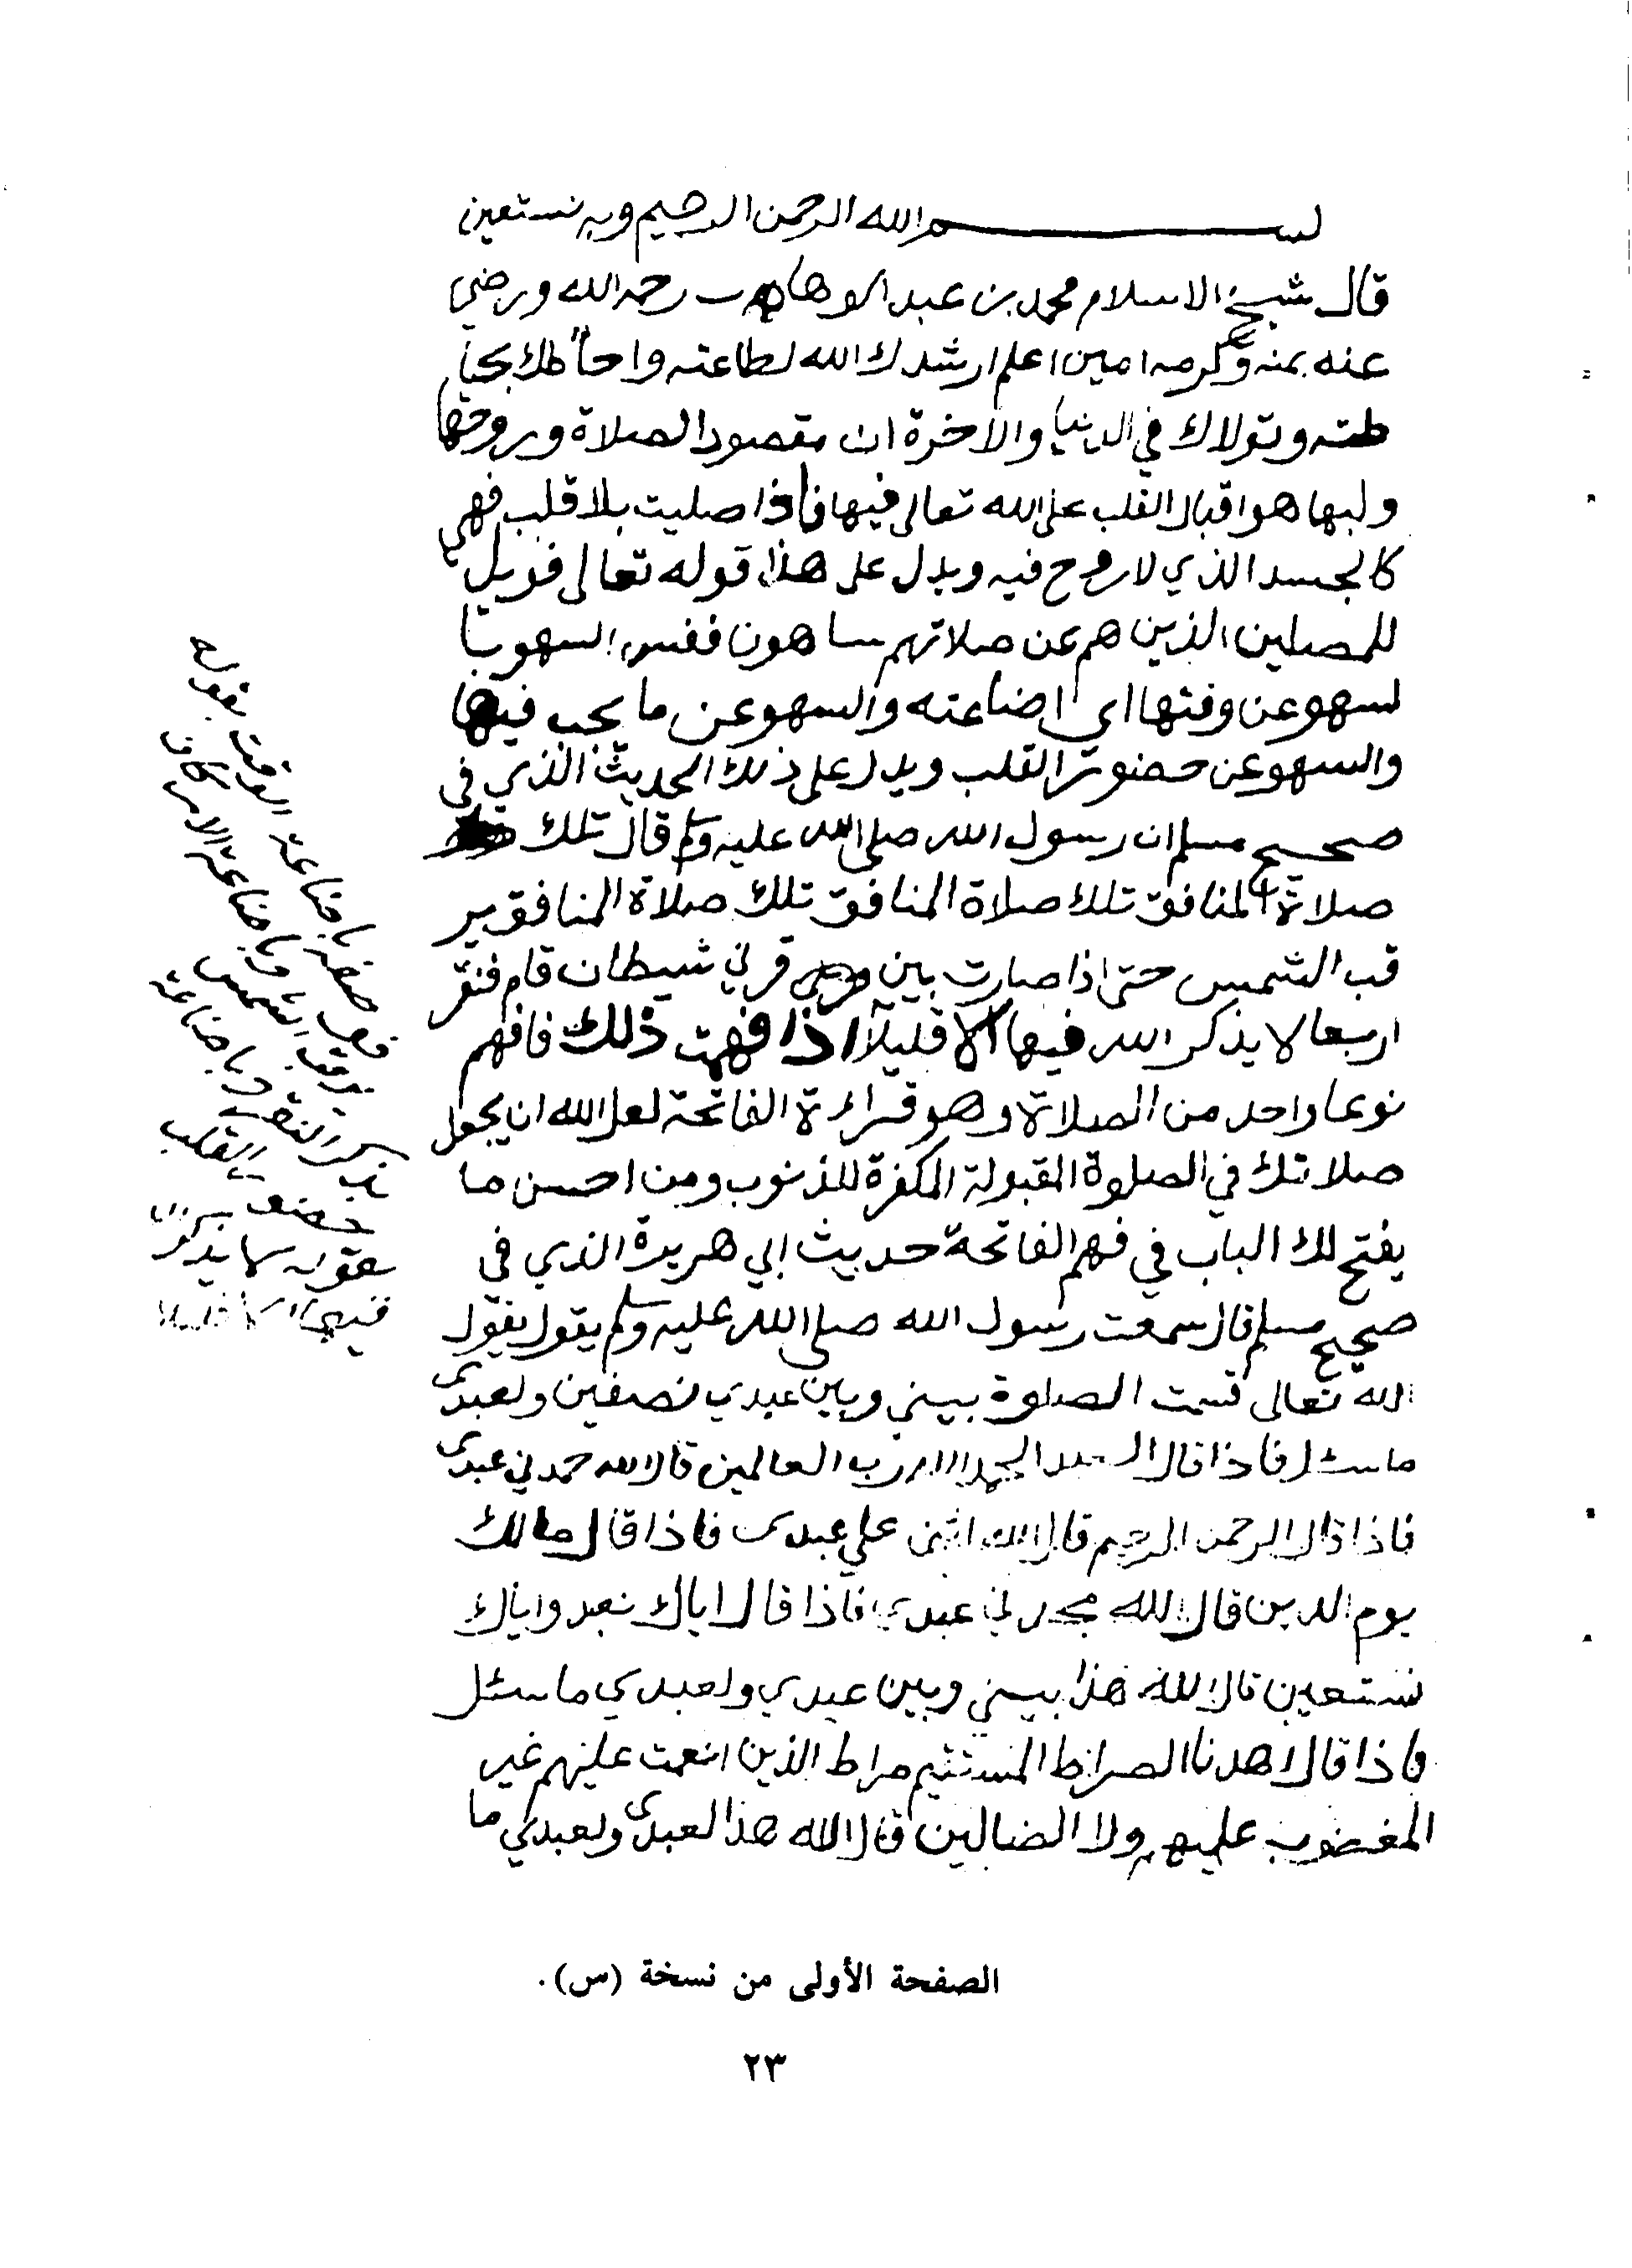 بسم الله الرحمن الرحيم وبه نستعين
قال شيخ الاسلام محمد بن عبد الوهاب رحمه الله ورضي
عنه بمنه وكرمه امين اعلم ارشدك الله لطاعته واحاطك بحيا
طته وتولاك في الدنيا والاخرة ان مقصود الصلاة وروحها
ولبها هو اقبال القلب على الله تعالى فيها فاذا صليت بلا قلب فهي
كالجسد الذي لا روح فيه ويدل على هذا قوله تعالى فويل
للمصلين الذين هم عن صلاتهم ساهون ففسر السهو با
لسهو عن وقتها اي اضاعته والسهو عن ما يجب فيها
والسهو عن حضور القلب ويدل على ذلك الحديث الذي في
صحيح مسلم ان رسول الله صلى الله عليه وسلم قال تلك
صلاة المنافق تلك صلاة المنافق تلك صلاة المنافق ير
قب الشمس حتى اذا صارت بين قرني شيطان قام فنقر
اربعا لا يذكر الله فيها الا قليلا اذا فهمت ذلك فافهم
نوعا واحد من الصلاة وهو قراءة الفاتحة لعل الله ان يجعل
صلاتك في الصلوة المقبولة المكفرة للذنوب ومن احسن ما
يفتح لك الباب في فهم الفاتحة حديث ابي هريرة الذي في
صحيح مسلم قال سمعت رسول الله صلى الله عليه وسلم يقول يقول
الله تعالى قسمت الصلوة بيني وبين عبدي نصفين ولعبدي
ما سئل فاذا قال العبد الحمد لله رب العالمين قال الله حمدني عبدي
فاذا قال الرحمن الرحيم قال الله اثنى علي عبدي فاذا قال مالك
يوم الدين قال الله مجدني عبدي فاذا قال اياك نعبد واياك
نستعين قال الله هذا بيني وبين عبدي ولعبدي ما سئل
فاذا قال اهدنا الصراط المستقيم صراط الذين انعمت عليهم غير
المغضوب عليهم ولا الضالين قال الله هذا لعبدي ولعبدي ما
باضاعة الوقت بقوله
وباضاعة الاركان
حضور القلب
بقوله لا يذكر الله
فيها الا قليلا
الصفحة الأولى من نسخة (س).
٢٣